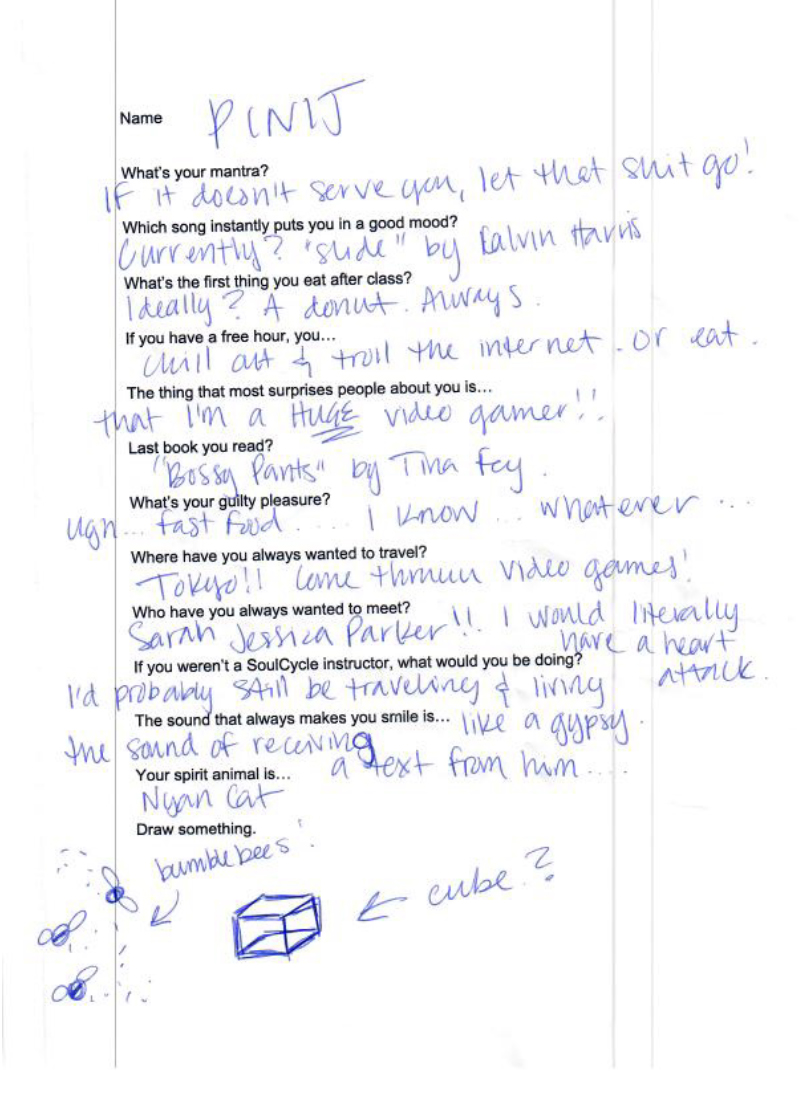 Name PINIJ
What's your mantra?
IF it doesn't serve you, let that shit go!
Which song instantly puts you in a good mood?
Currently? "Slide" by Calvin Harris
What's the first thing you eat after class?
Ideally? A donut. Always.
If you have a free hour, you...
Chill out & troll the internet. Or eat.
The thing that most surprises people about you is...
that I'm a HUGE video gamer!!
Last book you read?
"Bossy Pants" by Tina Fey.
What's your guilty pleasure?
Ugh... fast food..... I know... whatever...
Where have you always wanted to travel?
Tokyo!! Come video games!
Who have you always wanted to meet?
Sarah Jessica Parker!! I would literally
have a heart
attack.
If you weren't a SoulCycle instructor, what would you be doing?
I'd probably still be traveling & living
like a gypsy.
The sound that always makes you smile is...
the sound of receiving
a text from him....
Your spirit animal is...
Nyan Cat
Draw something.
bumblebees!
cube?